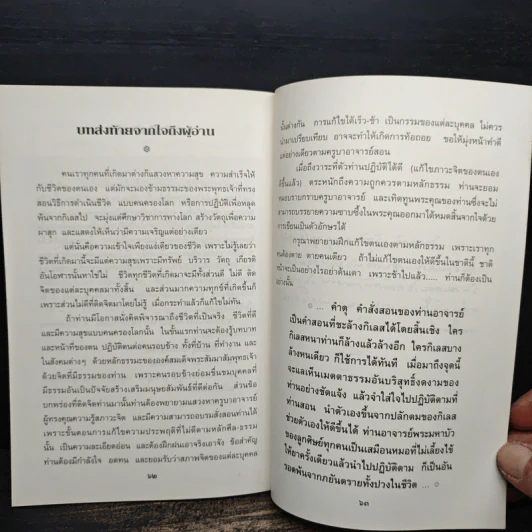 บทส่งท้ายจากใจถึงผู้อ่าน
คนเราทุกคนที่เกิดมาต่างก็แสวงหาความสุข ความสำเร็จให้
กับชีวิตของตนเอง แต่มักจะมองข้ามธรรมะของพระพุทธเจ้าที่ทรง
สอนวิธีการดำเนินชีวิต แบบคนครองโลก หรือการปฏิบัติเพื่อหลุด
พ้นจากกิเลสไป จะมุ่งแต่ศึกษาวิชาการทางโลก สร้างวัตถุเพื่อความ
ผาสุก และแสดงให้เห็นว่ามีความเจริญแต่อย่างเดียว
แต่นั่นคือความเข้าใจเพียงแง่เดียวของชีวิต เพราะไม่รู้เลยว่า
ชีวิตที่เกิดมานี้จะมีแต่ความสุขเพราะมีทรัพย์ บริวาร วัตถุ เกียรติ
อันโอฬารนั้นหาใช่ไม่ ชีวิตทุกชีวิตที่เกิดมาจะมีทั้งส่วนดี ไม่ดี ติด
จิตของแต่ละบุคคลมาทั้งสิ้น และส่วนมากความทุกข์ที่เกิดขึ้นก็
เพราะส่วนไม่ดีที่ติดจิตมาโดยไม่รู้ เมื่อกระทำแล้วก็แก้ไขไม่ทัน
ถ้าท่านมีโอกาสนั่งคิดพิจารณาถึงชีวิตที่เป็นจริง ชีวิตที่ดี
และมีความสุขแบบคนครองโลกนั้น ในขั้นแรกท่านจะต้องรู้บทบาท
และหน้าที่ของตน ปฏิบัติตนต่อคนรอบข้าง ทั้งที่บ้าน ที่ทำงาน และ
ในสังคมต่างๆ ด้วยหลักธรรมะขององค์สมเด็จพระสัมมาสัมพุทธเจ้า
ด้วยจิตที่มีธรรมของท่าน เพราะคนรอบข้างย่อมชื่นชมบุคคลที่
มีธรรมอันเป็นปัจจัยสร้างเสริมมนุษยสัมพันธ์ที่ดีต่อกัน ส่วนข้อ
บกพร่องที่ติดจิตท่านมานั้นท่านต้องพยายามแสวงหาครูบาอาจารย์
ผู้ทรงคุณความรู้สภาวะจิต และมีความสามารถอบรมสั่งสอนท่านได้
เพราะขั้นตอนการแก้ไขความประพฤติที่ไม่ดีตามหลักศีล-ธรรม
นั้น เป็นความละเอียดอ่อน และต้องฝึกฝนเอาจริงเอาจัง ข้อสำคัญ
ท่านต้องมีกำลังใจ อดทน และยอมรับว่าสภาพจิตของแต่ละบุคคล
๖๒
นั้นต่างกัน การแก้ไขได้เร็ว-ช้า เป็นกรรมของแต่ละบุคคล ไม่ควร
นำมาเปรียบเทียบ อาจจะทำให้เกิดการท้อถอย ขอให้มุ่งหน้าทำดี
แต่อย่างเดียวตามครูบาอาจารย์สอน
เมื่อถึงวาระที่ตัวท่านปฏิบัติได้ดี (แก้ไขภาวะจิตของตนเอง
ดีขึ้นแล้ว) ตระหนักถึงความถูกควรตามหลักธรรม ท่านจะยอม
หมอบกราบครูบาอาจารย์ และเทิดทูนพระคุณของท่านซึ่งจะไม่
สามารถบรรยายความซาบซึ้งในพระคุณออกมาได้หมดสิ้นจากใจด้วย
การเขียนเป็นตัวอักษรได้
กรุณาพยายามฝึกแก้ไขตนเองตามหลักธรรม เพราะเราทุก
คนต้องตาย ตายคนเดียว ถ้าไม่แก้ไขตนให้ดีขึ้นในชาตินี้ ชาติ
หน้าจะเป็นอย่างไรอย่าค้นตา เพราะช้าไปแล้ว.... ท่านก็ต้องเป็น
อย่างนั้น
... คำดุ คำสั่งสอนของท่านอาจารย์
เป็นคำสอนที่ชะล้างกิเลสได้โดยสิ้นเชิง ใคร
กิเลสหนาท่านก็ล้างแล้วล้างอีก ใครกิเลสบาง
ล้างหนเดียว ก็ใช้การได้ทันที เมื่อมาถึงจุดนี้
จะแลเห็นเมตตาธรรมอันบริสุทธิ์งดงามของ
ท่านอย่างชัดแจ้ง แล้วจำใส่ใจไปปฏิบัติตามที่
ท่านสอน นำตัวเองขึ้นจากปลักตมของกิเลส
ช่วยตัวเองให้ดีขึ้นได้ ท่านอาจารย์พระมหาบัว
ของลูกศิษย์ทุกคนเป็นเสมือนหมอที่ไม่เลี้ยงไข้
ให้ยาครั้งเดียวแล้วนำไปปฏิบัติตาม ก็เป็นอัน
รอดพ้นจากภยันตรายทั้งปวงในชีวิต ...
๖๓